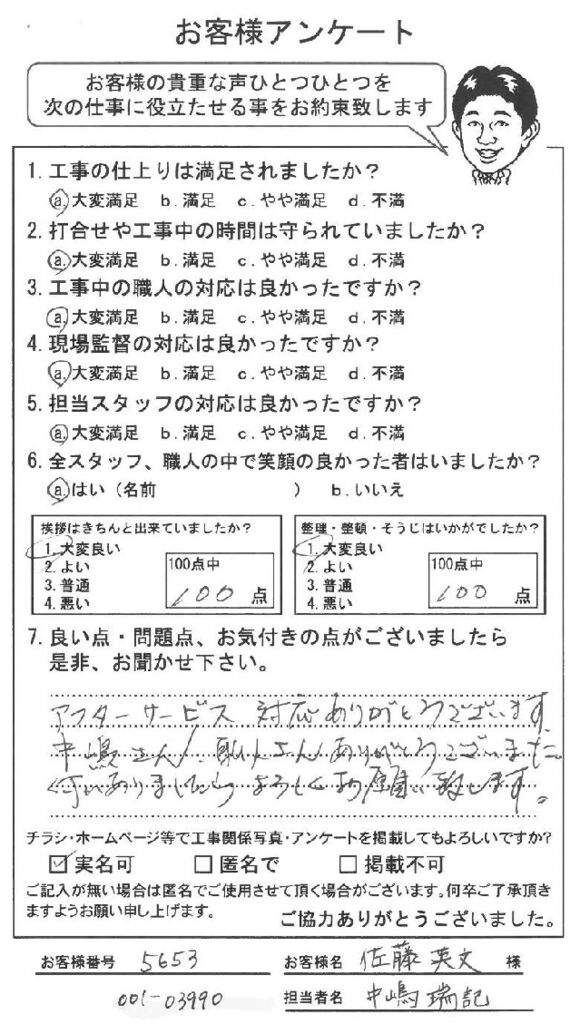 お客様アンケート
お客様の貴重な声ひとつひとつを
次の仕事に役立たせる事をお約束致します
1. 工事の仕上りは満足されましたか？
a. 大変満足 b. 満足 c. やや満足 d. 不満
2. 打合せや工事中の時間は守られていましたか？
a. 大変満足 b. 満足 c. やや満足 d. 不満
3. 工事中の職人の対応は良かったですか？
a. 大変満足 b. 満足 c. やや満足 d. 不満
4. 現場監督の対応は良かったですか？
a. 大変満足 b. 満足 c. やや満足 d. 不満
5. 担当スタッフの対応は良かったですか？
a. 大変満足 b. 満足 c. やや満足 d. 不満
6. 全スタッフ、職人の中で笑顔の良かった者はいましたか？
a. はい（名前 ） b. いいえ
挨拶はきちんと出来ていましたか？
1. 大変良い
2. よい
3. 普通
4. 悪い
100点中
100 点
整理・整頓・そうじはいかがでしたか？
1. 大変良い
2. よい
3. 普通
4. 悪い
100点中
100 点
7. 良い点・問題点、お気付きの点がございましたら
是非、お聞かせ下さい。
アフターサービス 対応ありがとうございます
中嶋さん、職人さんありがとうございました
何かありましたらよろしくお願い致します。
チラシ・ホームページ等で工事関係写真・アンケートを掲載してもよろしいですか？
☑ 実名可 □ 匿名で □ 掲載不可
ご記入が無い場合は匿名でご使用させて頂く場合がございます。何卒ご了承頂き
ますようお願い申し上げます。 ご協力ありがとうございました。
お客様番号 5653 お客様名 佐藤 英文 様
001-03990 担当者名 中嶋 瑞記